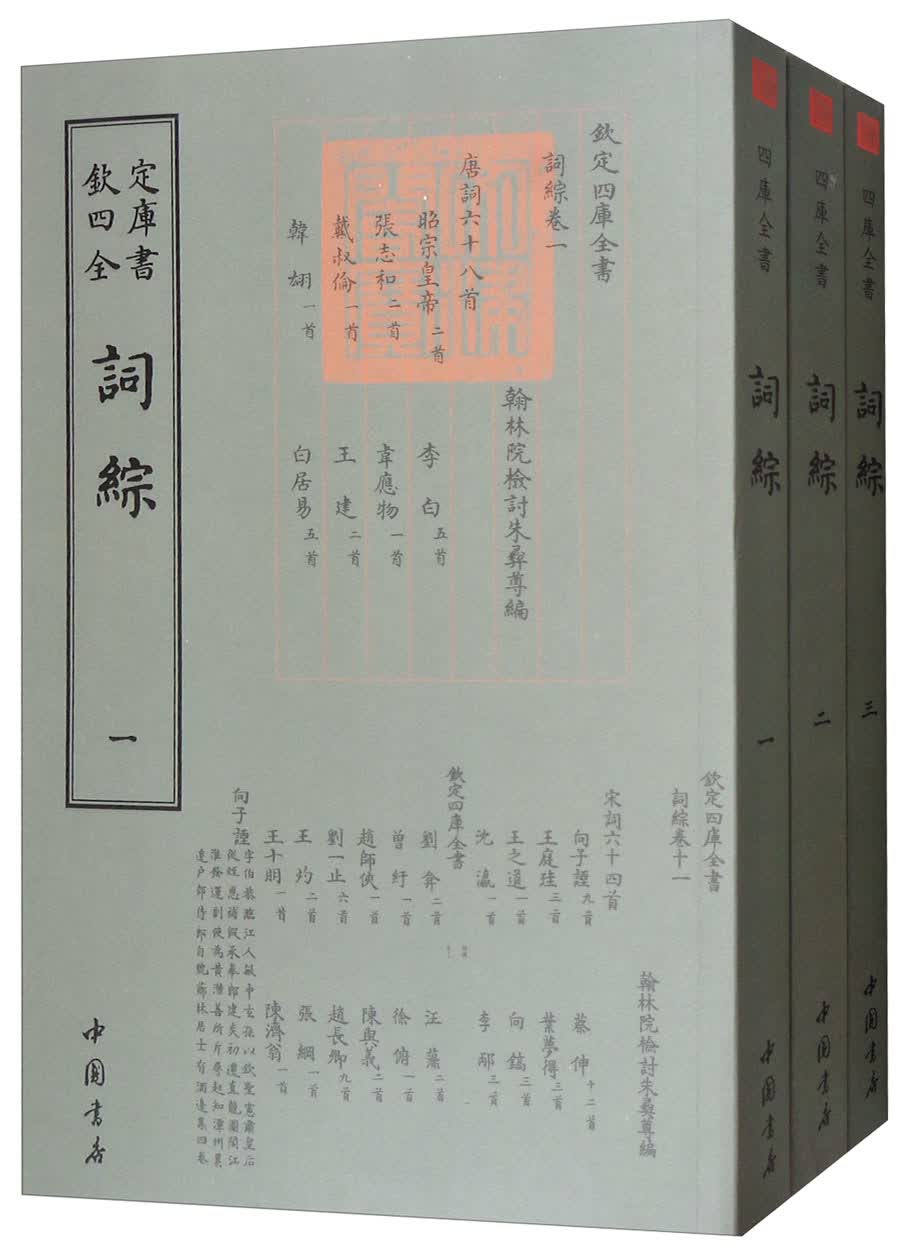 欽定四庫全書
詞綜
一
中国书店
欽定四庫全書
詞綜卷一
翰林院檢討朱彝尊編
唐詞六十八首
昭宗皇帝二首
李白五首
張志和二首
韋應物一首
戴叔倫一首
王建二首
韓翃一首
白居易五首
欽定四庫全書
詞綜卷十一
翰林院檢討朱彝尊編
宋詞六十四首
向子諲九首
蔡伸十二首
王庭珪三首
葉夢得三首
王之道一首
向鎬三首
沈瀛一首
李邴三首
欽定四庫全書
劉弇二首
汪藻二首
曾紆一首
徐俯一首
趙師俠一首
陳與義二首
劉一止六首
趙長卿九首
王灼二首
張綱一首
王十朋一首
陳濟翁一首
向子諲
字伯恭臨江人敏中玄孫以欽聖憲肅皇后
從姪恩補假承奉郎建炎初遷直龍圖閣江
淮發運副使為黄潛善所斥尋起知潭州累
遷户部侍郎自號薌林居士有酒邊集四卷
四庫全書
詞綜
一
中国书店
四庫全書
詞綜
二
中国书店
四庫全書
詞綜
三
中国书店